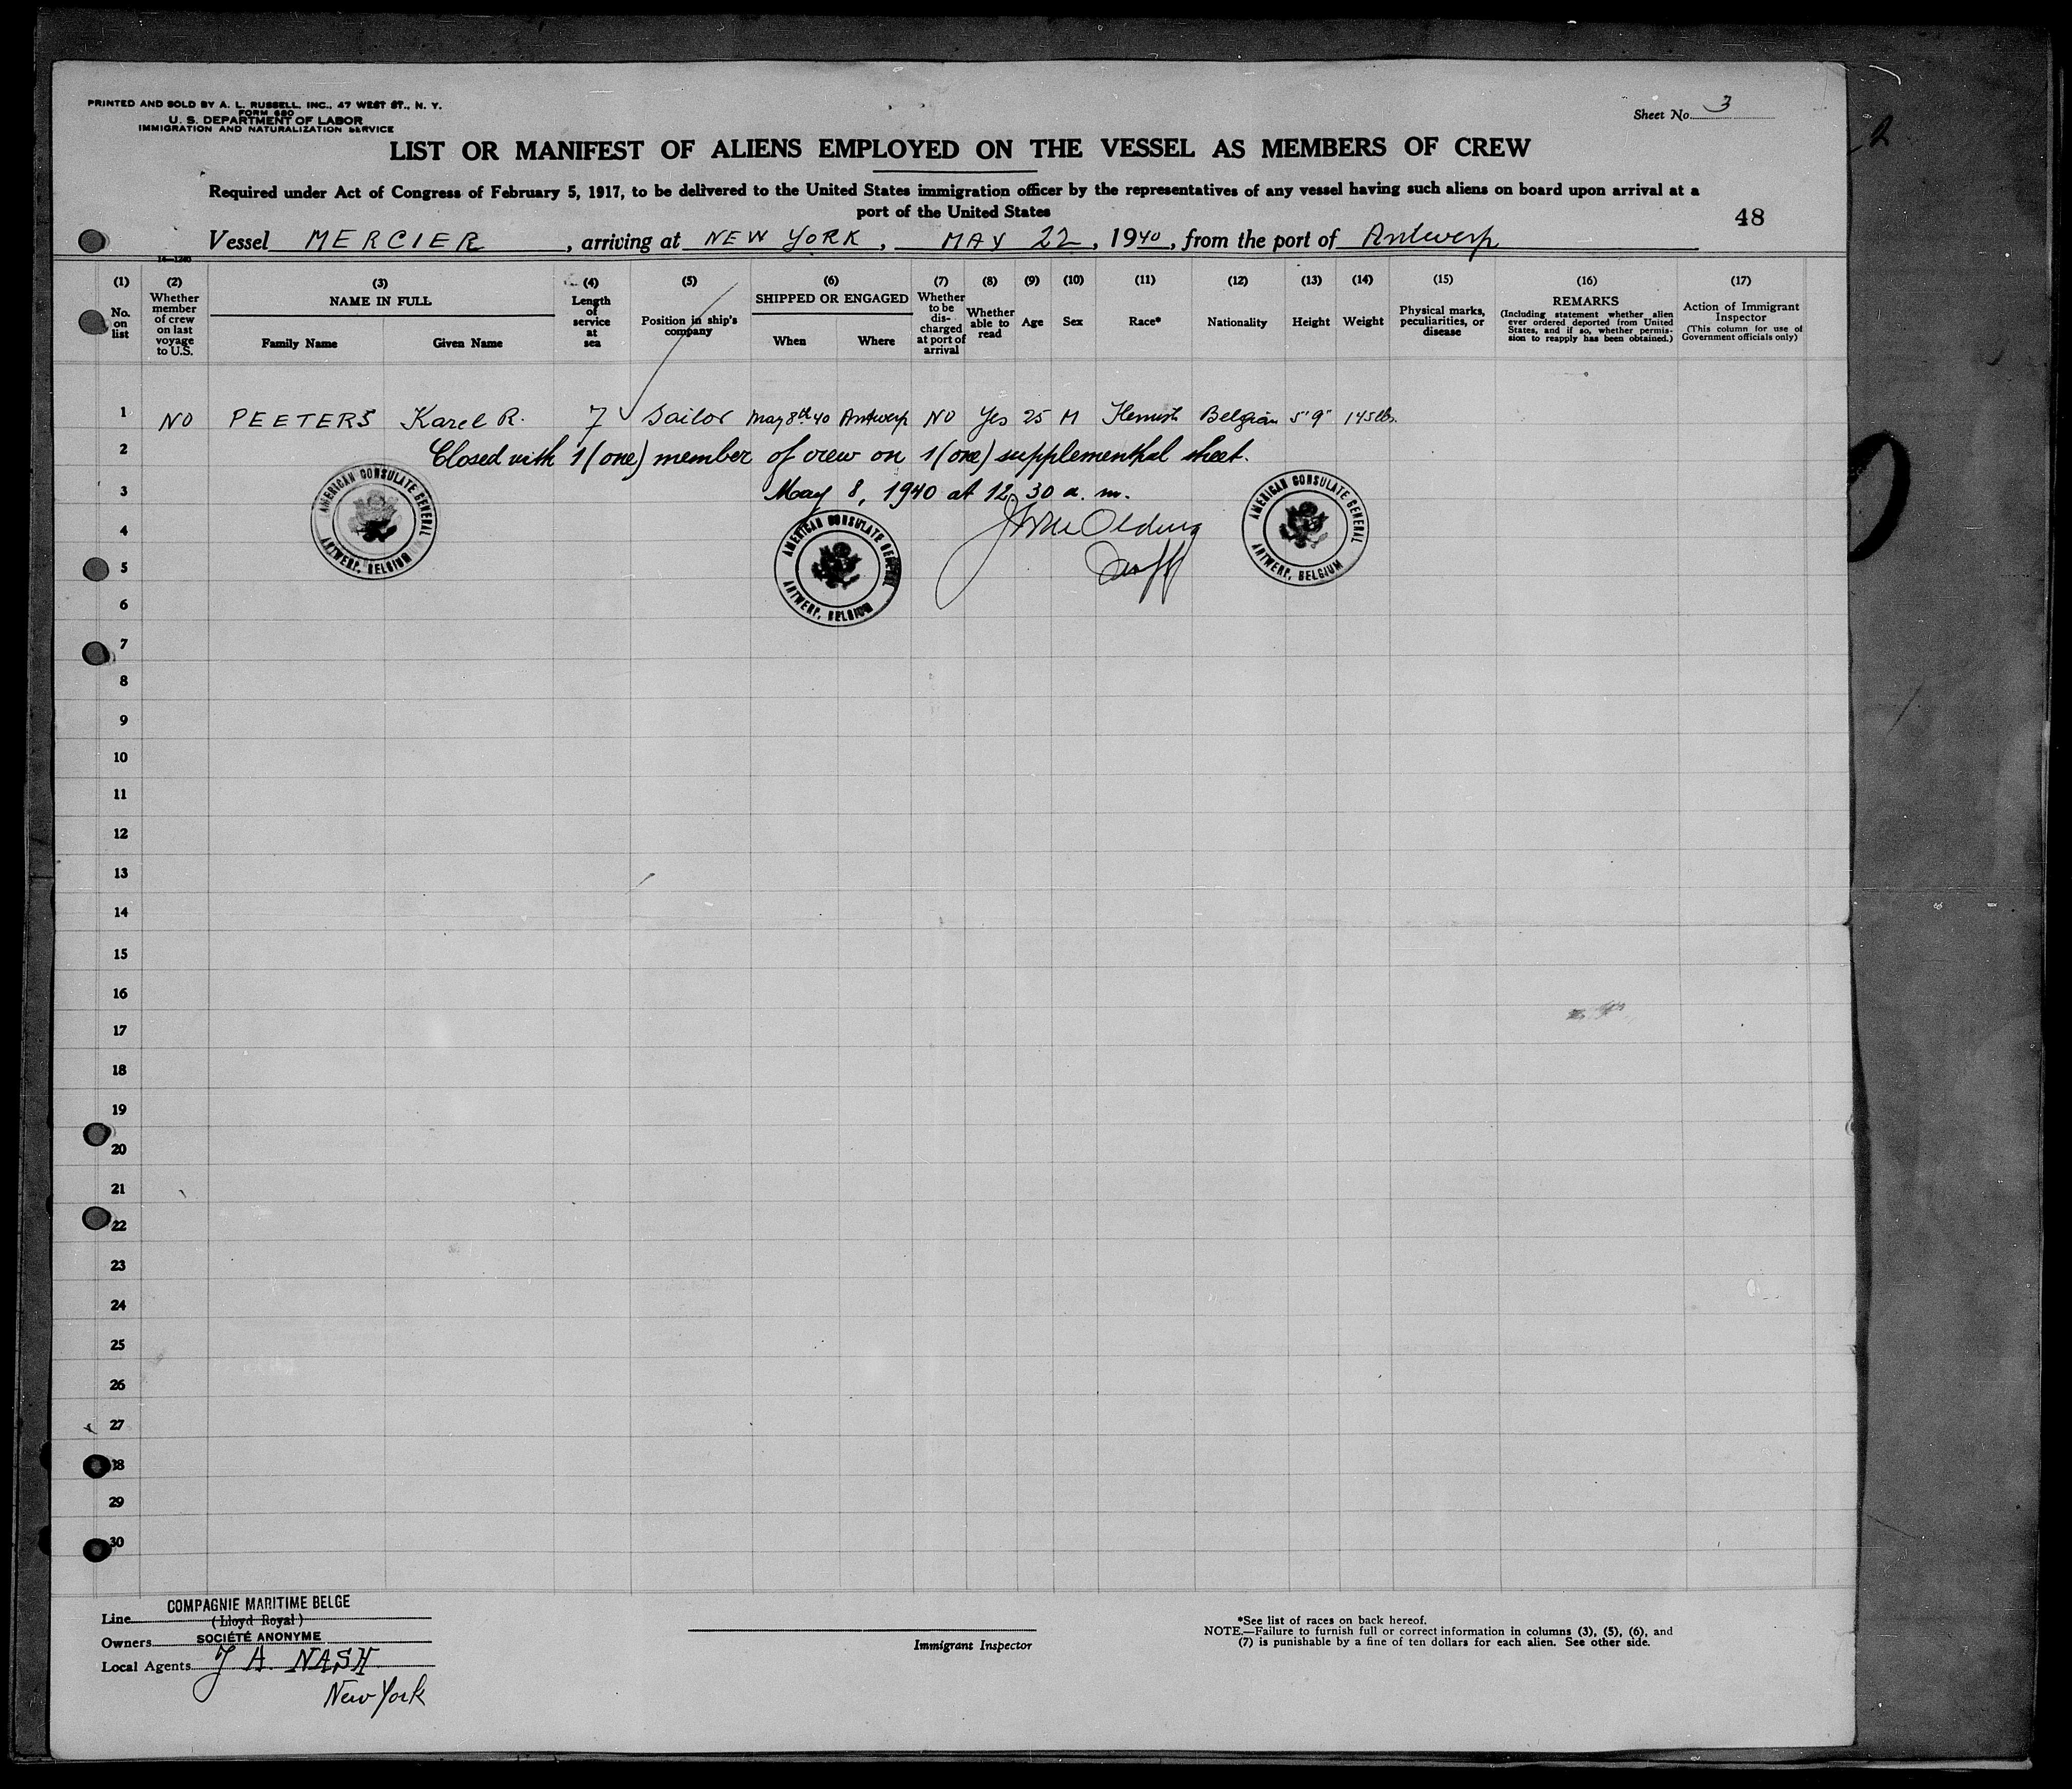 PRINTED AND SOLD BY A. L. RUSSELL, INC., 47 WEST ST., N. Y.
FORM 680
U. S. DEPARTMENT OF LABOR
IMMIGRATION AND NATURALIZATION SERVICE
Sheet No. 3
LIST OR MANIFEST OF ALIENS EMPLOYED ON THE VESSEL AS MEMBERS OF CREW
Required under Act of Congress of February 5, 1917, to be delivered to the United States immigration officer by the representatives of any vessel having such aliens on board upon arrival at a
port of the United States
48
Vessel MERCIER, arriving at NEW YORK, MAY 22, 1940, from the port of Antwerp
(1) No. on list
(2) Whether member of crew on last voyage to U.S.
(3) NAME IN FULL
Family Name Given Name
(4) Length of service at sea
(5) Position in ship's company
(6) SHIPPED OR ENGAGED
When Where
(7) Whether to be discharged at port of arrival
(8) Whether able to read
(9) Age
(10) Sex
(11) Race*
(12) Nationality
(13) Height
(14) Weight
(15) Physical marks, peculiarities, or disease
(16) REMARKS
(Including statement whether alien ever ordered deported from United States, and if so, whether permission to reapply has been obtained.)
(17) Action of Immigrant Inspector
(This column for use of Government officials only)
1 NO PEETERS Karel R. 7 Sailor May 8th 40 Antwerp NO Yes 25 M Flemish Belgian 5'9" 145lbs.
2 Closed with 1 (one) member of crew on 1 (one) supplemental sheet.
3 May 8, 1940 at 12.30 a. m.
AMERICAN CONSULATE GENERAL
ANTWERP, BELGIUM
AMERICAN CONSULATE GENERAL
ANTWERP, BELGIUM
AMERICAN CONSULATE GENERAL
ANTWERP, BELGIUM
4
5
6
7
8
9
10
11
12
13
14
15
16
17
18
19
20
21
22
23
24
25
26
27
28
29
30
Line COMPAGNIE MARITIME BELGE
(Lloyd Royal)
Owners SOCIÉTÉ ANONYME
Local Agents J A. NASH
New York
Immigrant Inspector
*See list of races on back hereof.
NOTE.—Failure to furnish full or correct information in columns (3), (5), (6), and
(7) is punishable by a fine of ten dollars for each alien. See other side.